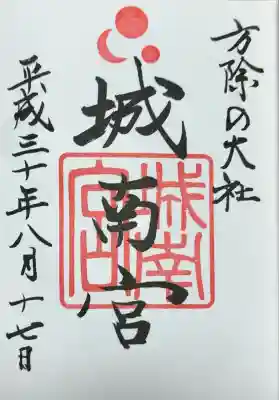 方除の大社
城南宮
城南宮印
平成三十年八月十七日